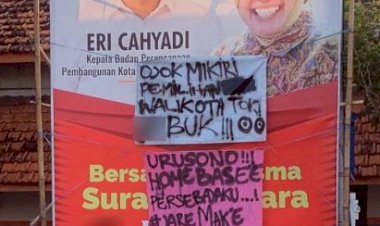 ERI CAHYADI
Kepala Badan Perencanaan
Pembangunan Kota
OJOK MIKIRI
PEMILIHAN
WALIKOTA TOK!
BUK!!!
Bersa ma
Sura ara
URUSONO!!!
HOME BASE E
PERSEBAYAKU...!
#JARE MAKE